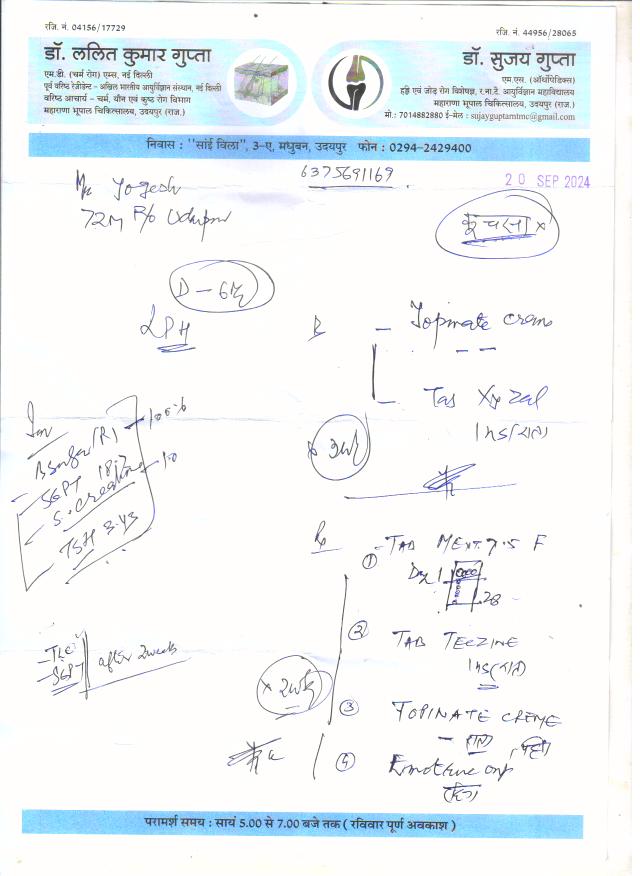 रजि. नं. 04156/17729
रजि. नं. 44956/28065
डॉ. ललित कुमार गुप्ता
एम.डी. (चर्म रोग) एम्स, नई दिल्ली
पूर्व वरिष्ठ रेजीडेन्ट - अखिल भारतीय आयुर्विज्ञान संस्थान, नई दिल्ली
वरिष्ठ आचार्य - चर्म, यौन एवं कुष्ठ रोग विभाग
महाराणा भूपाल चिकित्सालय, उदयपुर (राज.)
डॉ. सुजय गुप्ता
एम.एस. (ऑर्थोपेडिक्स)
हड्डी एवं जोड़ रोग विशेषज्ञ, र.ना.टै. आयुर्विज्ञान महाविद्यालय
महाराणा भूपाल चिकित्सालय, उदयपुर (राज.)
मो.: 7014882880 ई-मेल : sujayguptarntmc@gmail.com
निवास : "सांई विला", 3-ए, मधुबन, उदयपुर फोन : 0294-2429400
6375691169
20 SEP 2024
Mr Yogesh
72M R/o Udaipur
D - 6
LPH
Topinate cream
Tab Xyzal
1 HS
Inv
B Sugar (R) 100
SGPT 18
S. creatinine 1.0
TSH 3.43
Rx
① - TAB MEXT 7.5 F
Day 1
28
② TAB TECZINE
1 HS
③ TOPINATE CREME
④
TLC
SGPT
after 2 week
परामर्श समय : सायं 5.00 से 7.00 बजे तक ( रविवार पूर्ण अवकाश )